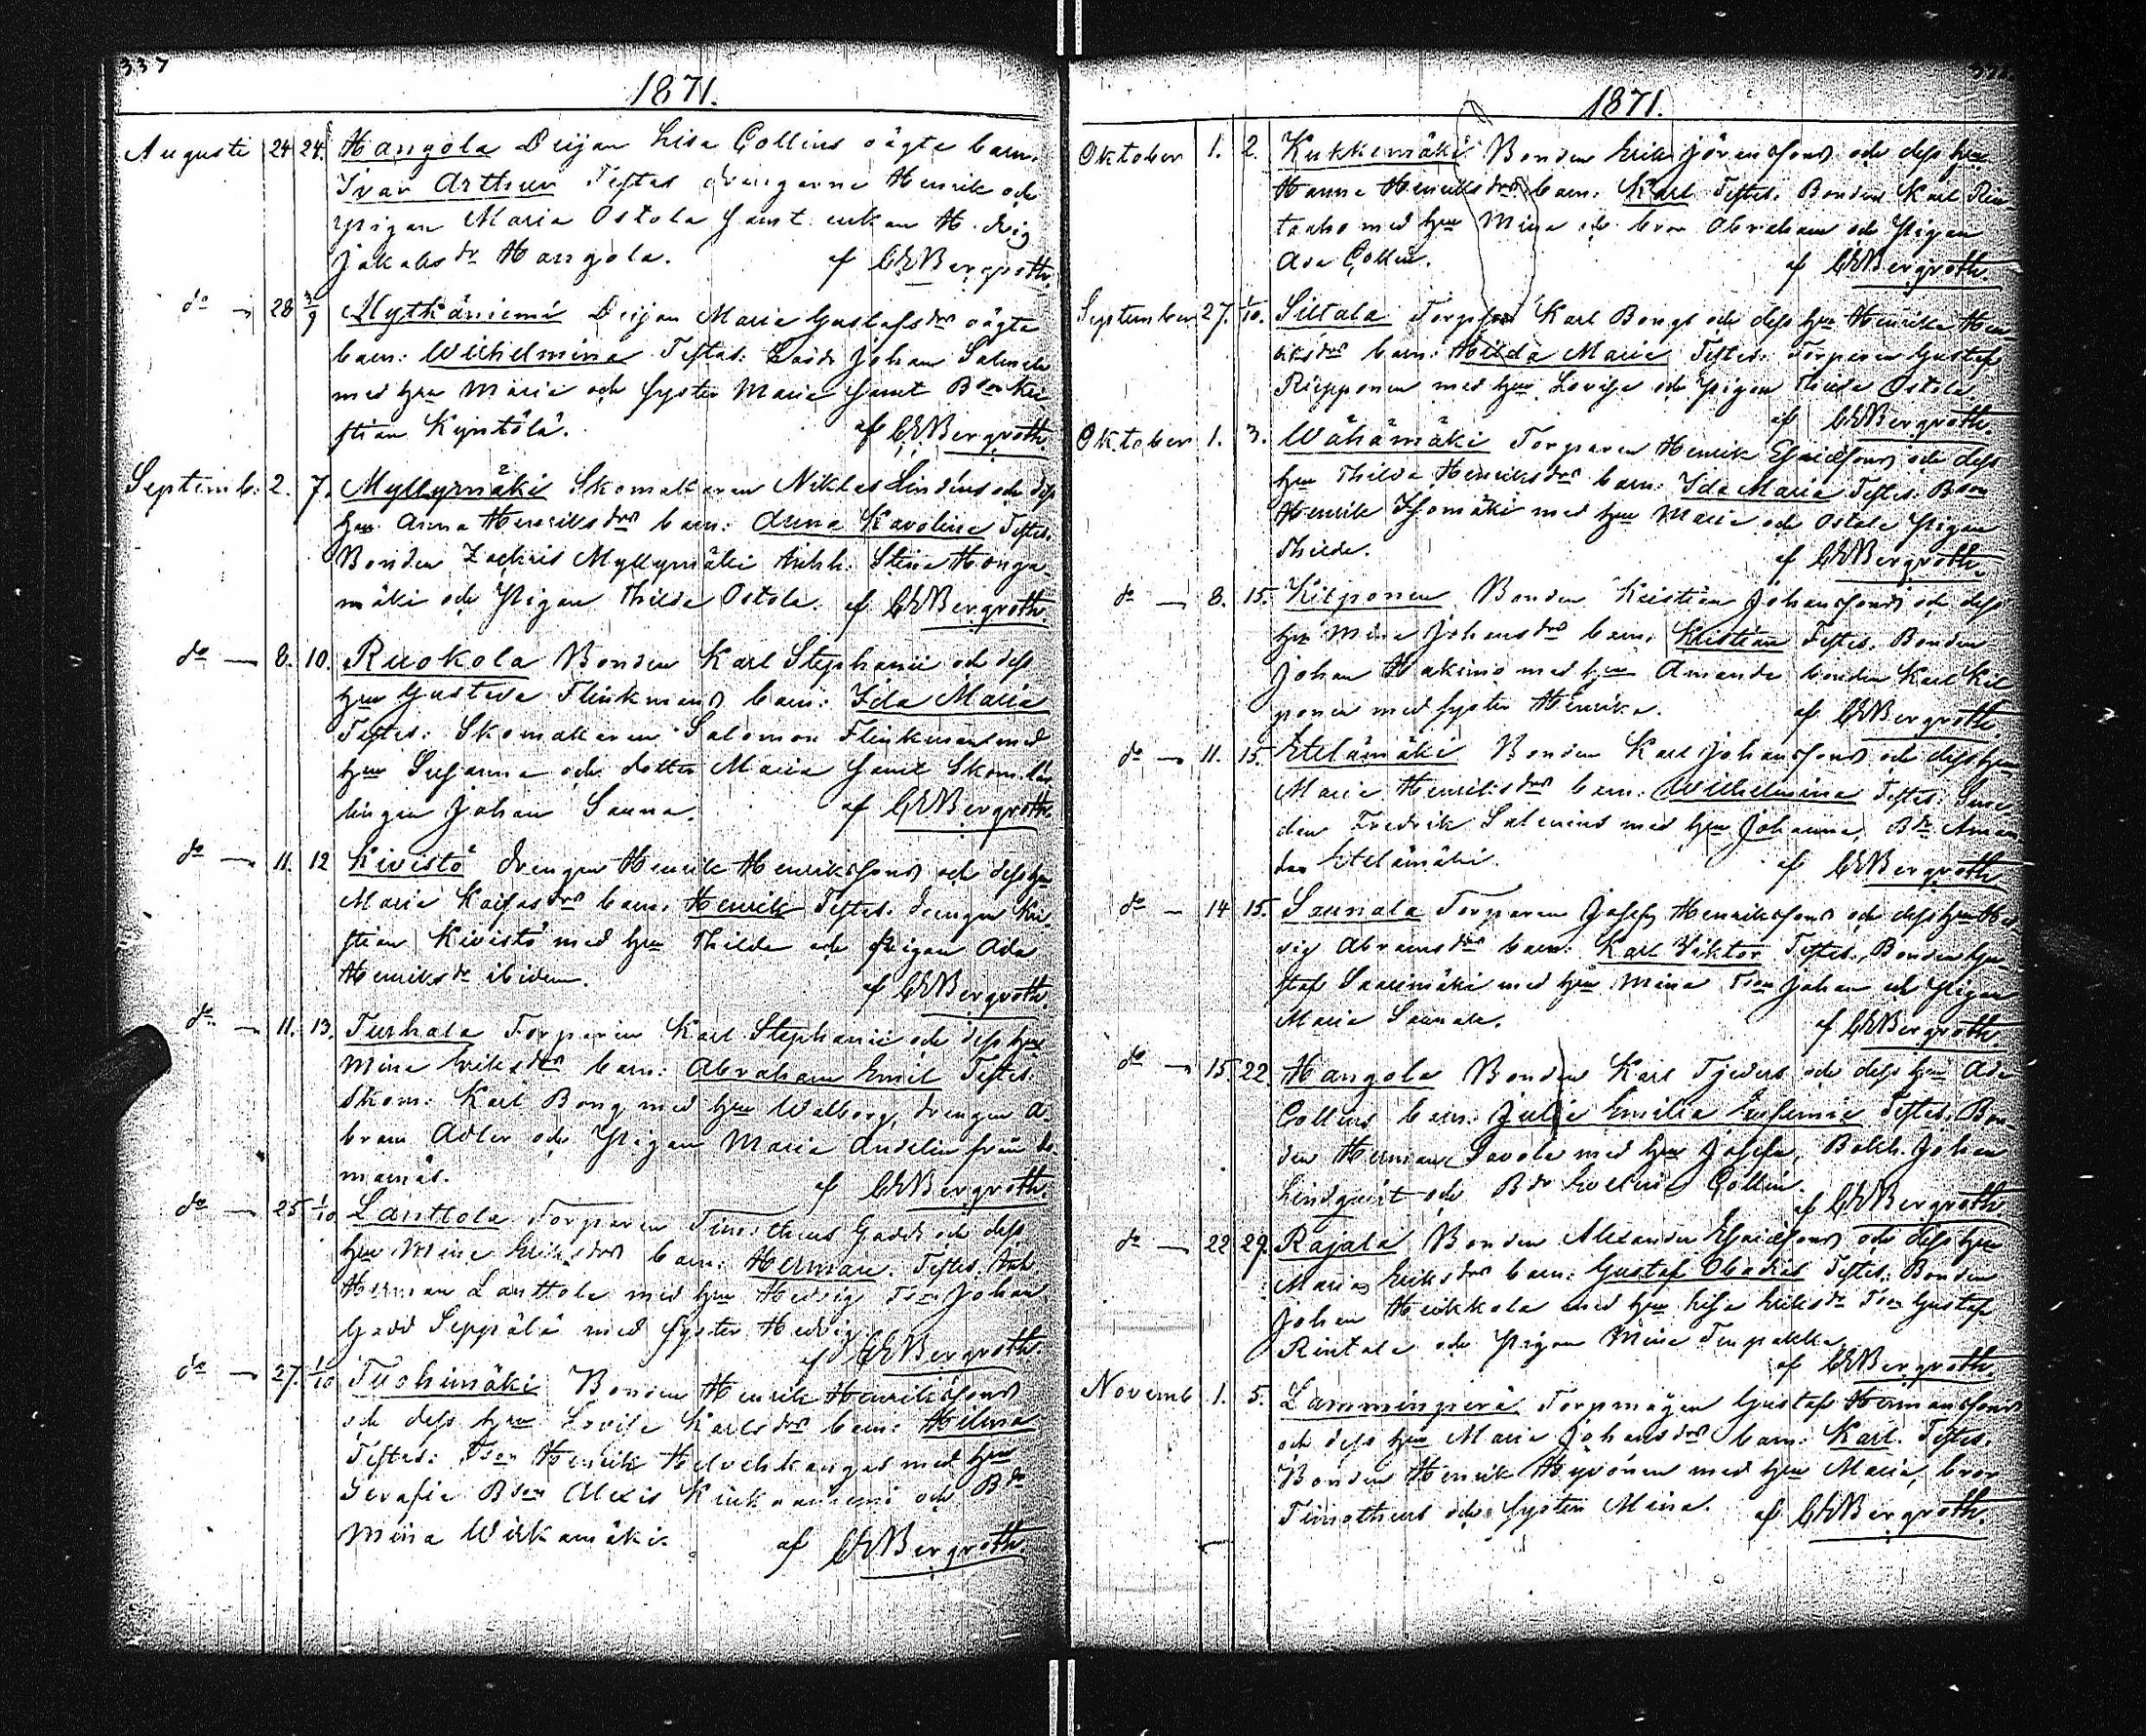 337
1871.
Augusti 24 24. Hangola Deijan Lisa Collins oägta barn:
Ivar Arthur Testes drengarne Henrik och
pigan Maria Ostola samt enkan Hedvig
Jakobsdr Hangola. af CEBergroth.
do — 28 3/9 Mytkäniemi Deijan Maria Gustafsdrs oägta
barn: Wilhelmina Testes: Johan
med hru Maria och syster Maria samt Bson Kri
stian Kyntölä. af CEBergroth.
Septemb: 2. 7. Myllymäki Skomakaren Niklas Lindéns och dess
hru Anna Henriksdrs barn: Anna Karolina Testes.
Bonden Zachris Myllymäki Stina Honga-
mäki och Pigan Thilda Ostola. af CEBergroth.
do — 8. 10. Ruokola Bonden Karl Stephanii och dess
hru Gustava Flinkmans barn: Ida Maria
Testes: Skomakaren Salomon Flinkman med
hru Susanna och dotter Maria samt Skom. lär
lingen Johan Sauna. af CEBergroth.
do — 11. 12 Kivistö drengen Henrik Henrikssons och dess hru
Maria Kaisasdrs barn: Henrik Testes. drengen Kri
stian Kivistö med hru Thilda och pigan Ada
Henriksdr ibidem. af CEBergroth.
do — 11. 13. Turhala Torparen Karl Stephanii och dess hru
Mina Eriksdrs barn: Abraham Emil Testes.
Skom: Karl Bong med hru Walborg, drengen A-
bram Adler och Pigan Maria Andelin från Do-
marnäs. af CEBergroth.
do — 25 1/10 Lanttola Torparen Timotheus Gadds och dess
hru Mina Eriksdrs barn: Herman. Testes.
Herman Lanttola med hru Hedvig Tson Johan
Gadd Seppälä med syster Hedvig.
af CEBergroth.
do — 27. 1/10 Tuohimäki Bonden Henrik Henrikssons
och dess hru Lovisa Karlsdrs barn: Hilma
Testes: Tson Henrik Helvehkangas med hru
Serafia Bson Alexis och Bdr
Mina Wirkamäki. af CEBergroth.
1871.
Oktober 1. 2. Kukkemäki Bonden Erik Jöranssons och dess hru
Hanna Henriksdrs barn: Karl Testes. Bonden Karl Rin-
taaho med hru Mina och bror Abraham och Pigan
Ada Collin. af CEBergroth.
September 27. 1/10. Siltala Torpson Karl Bongs och dess hru Henrika Hen
riksdrs barn: Hilda Maria Testes: Torparen Gustaf
Riipponen med hru Lovisa och Pigan Thilda Ostola.
af CEBergroth.
Oktober 1. 3. Wähämäki Torparen Henrik Esaiassons och dess
hru Thilda Henriksdrs barn: Ida Maria Testes. Bson
Henrik Isomäki med hru Maria och Ostola Pigan
Thilda. af CEBergroth.
do — 8. 15. Kilponen Bonden Kristian Johanssons och dess
hru Mina Johansdrs barn: Kristian Testes. Bonden
Johan Hakimo med hru Amanda bonden Karl Kil
ponen med syster Henrika. af CEBergroth.
do — 11. 15. Etelämäki Bonden Karl Johanssons och dess hru
Maria Henriksdrs barn: Wilhelmina Testes: Sme-
den Fredrik Salenius med hru Johanna, Bdr Aman
da Etelämäki. af CEBergroth.
do — 14 15. Saunala Torparen Josef Henrikssons och dess hru Hed
vig Abramsdrs barn: Karl Viktor Testes, Bonden Gu-
staf Saarimäki med hru Mina Tson Johan och Pigan
Maria Saunala. af CEBergroth.
do — 15. 22. Hangola Bonden Karl Tjeders och dess hru Ada
Collins barn: Julia Emilia Eufemia Testes. Bon-
den Herman Savola med hru Josefa, Bokh. Johan
Lindqvist och Bdr Evelina Collin.
af CEBergroth.
do — 22 29. Rajala Bonden Alexander Esaiassons och dess hru
Marias Eriksdrs barn: Gustaf Obadias Testes: Bonden
Johan Heikkola med hru Lisa Eriksdr Tson Gustaf
Rintala och Pigan Mina Tinpakka
af CEBergroth.
Novemb. 1. 5. Lamminperä Torpmågen Gustaf Hermanssons
och dess hru Maria Johansdrs barn: Karl. Testes.
Bonden Henrik Hyvönen med hru Maria, bror
Timotheus och syster Mina. af CEBergroth.